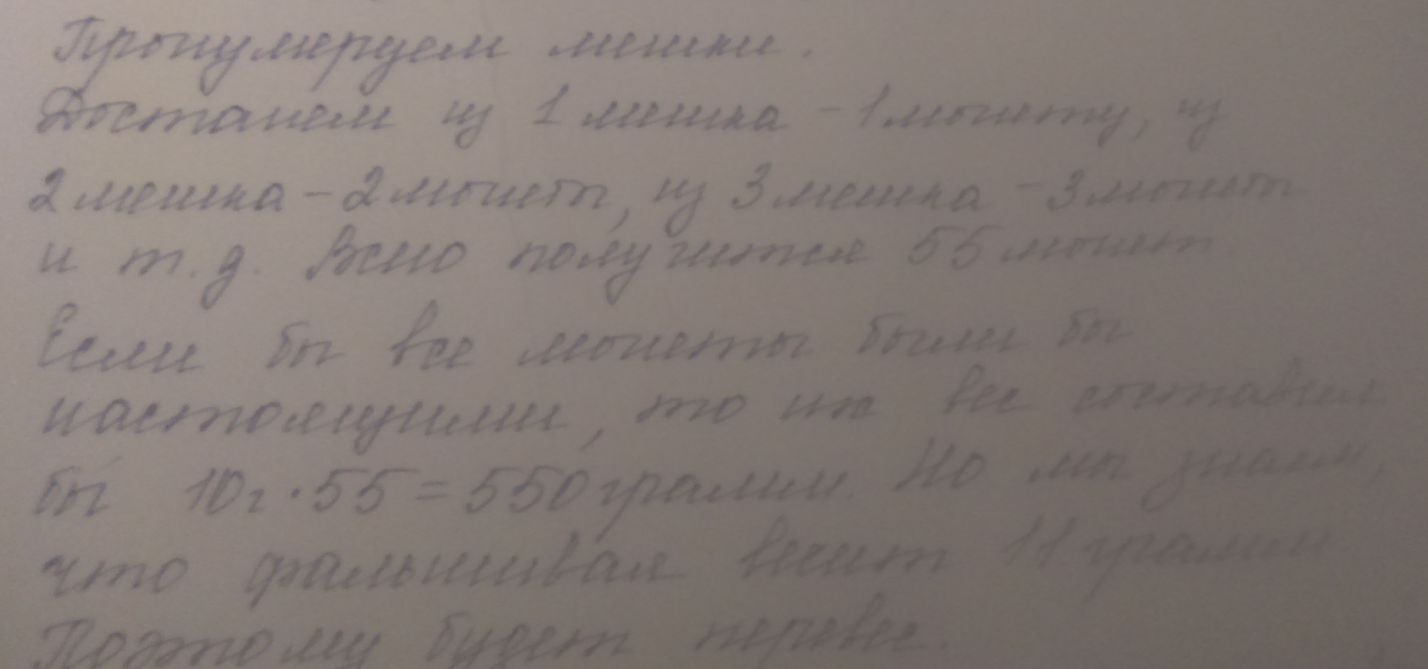 Пронумеруем мешки.
Достанем из 1 мешка – 1 монету, из
2 мешка – 2 монеты, из 3 мешка – 3 монеты
и т.д. Всего получится 55 монет
Если бы все монеты были бы
настоящими, то их вес составил
бы 10г·55=550 грамм. Но мы знаем,
что фальшивая весит 11 грамм
Поэтому будет перевес.